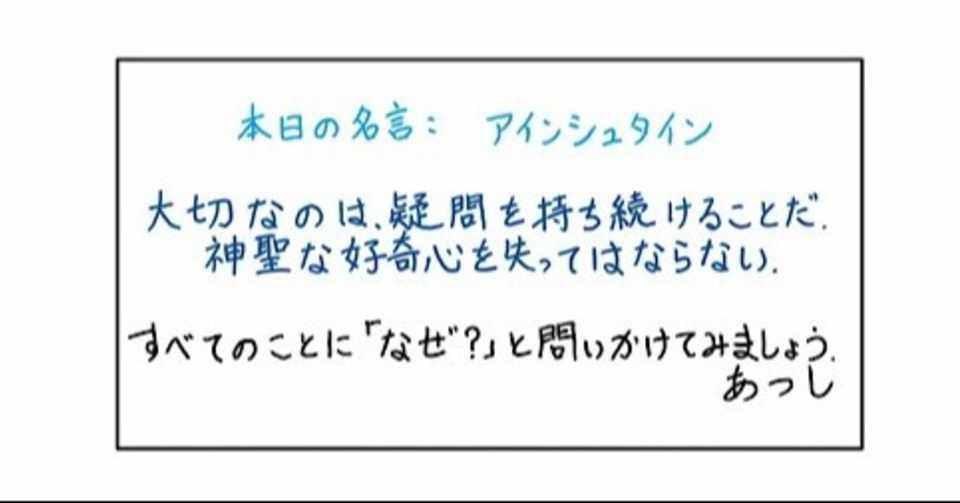 本日の名言： アインシュタイン
大切なのは、疑問を持ち続けることだ.
神聖な好奇心を失ってはならない.
すべてのことに「なぜ?」と問いかけてみましょう.
あつし